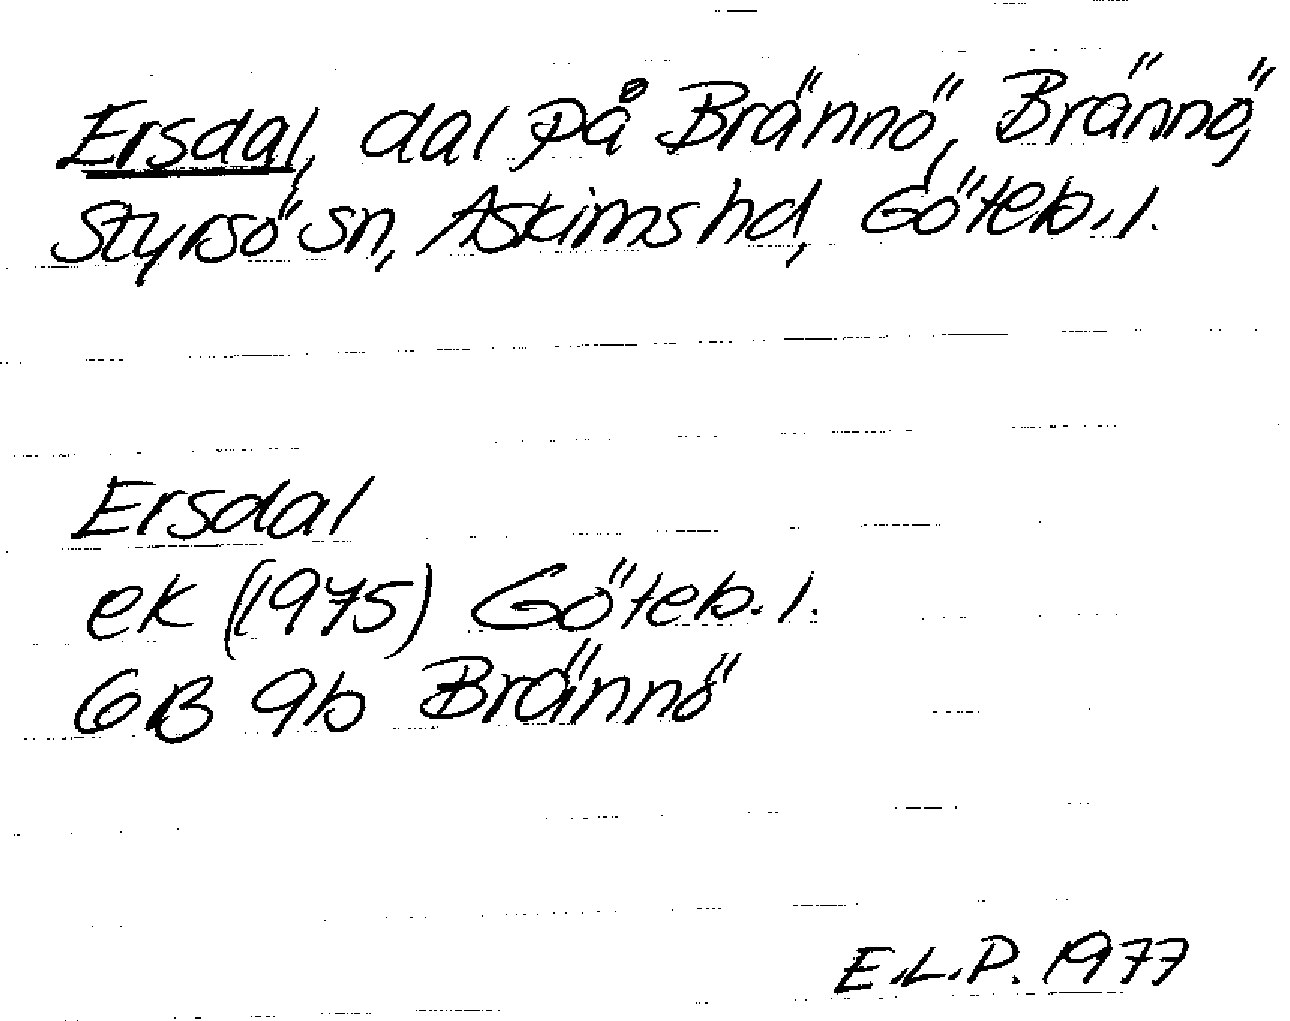 Ersdal, dal på Brännö, Brännö,
Styrsö sn, Askims hd, Göteb. l.
Ersdal
ek (1975) Göteb. l.
GB 9b Brännö
E.L.P. 1977